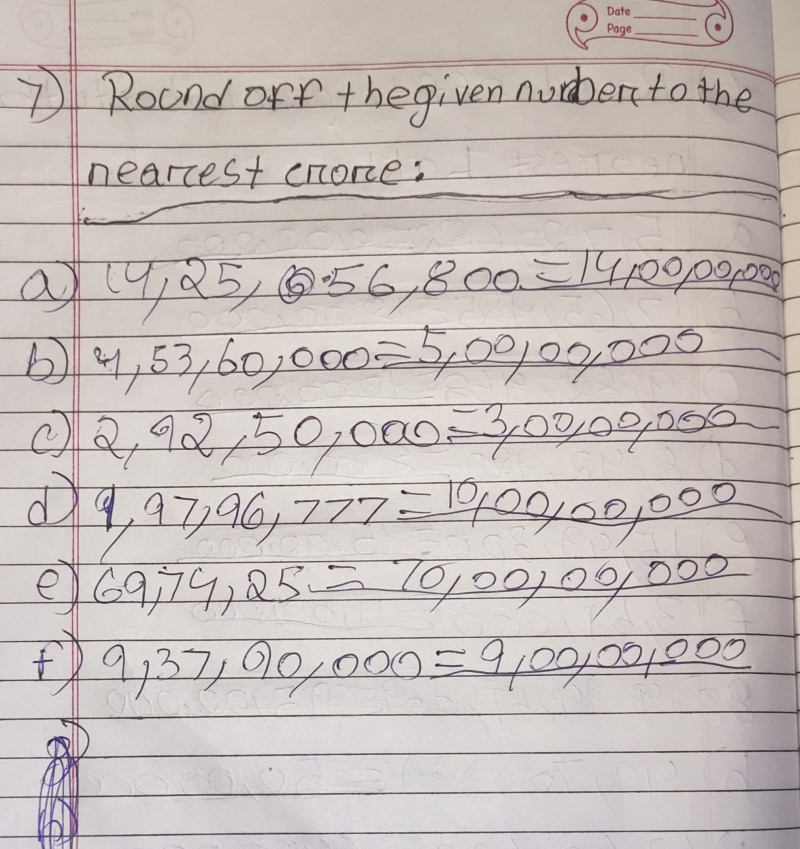 Date
Page
7) Round off the given number to the
nearest crore:
a) 14,25,656,800 = 14,00,00,000
b) 4,53,60,000 = 5,00,00,000
c) 2,92,50,000 = 3,00,00,000
d) 9,97,96,777 = 10,00,00,000
e) 69,74,25 = 70,00,00,000
f) 9,37,90,000 = 9,00,00,000